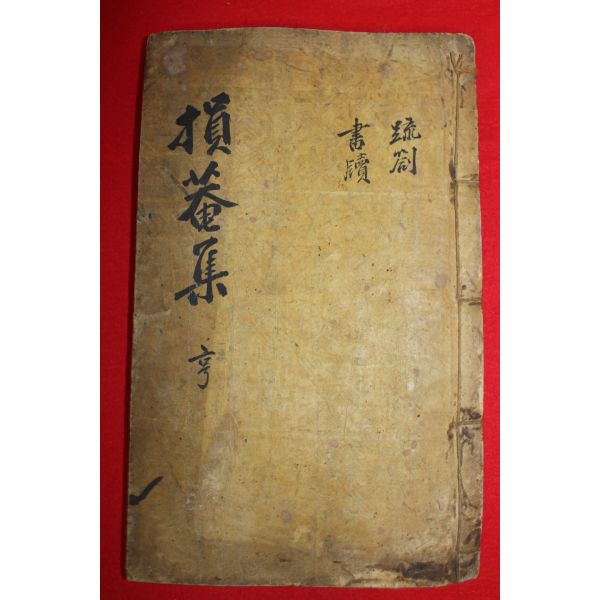 疏箚
書牘
損菴集 亨